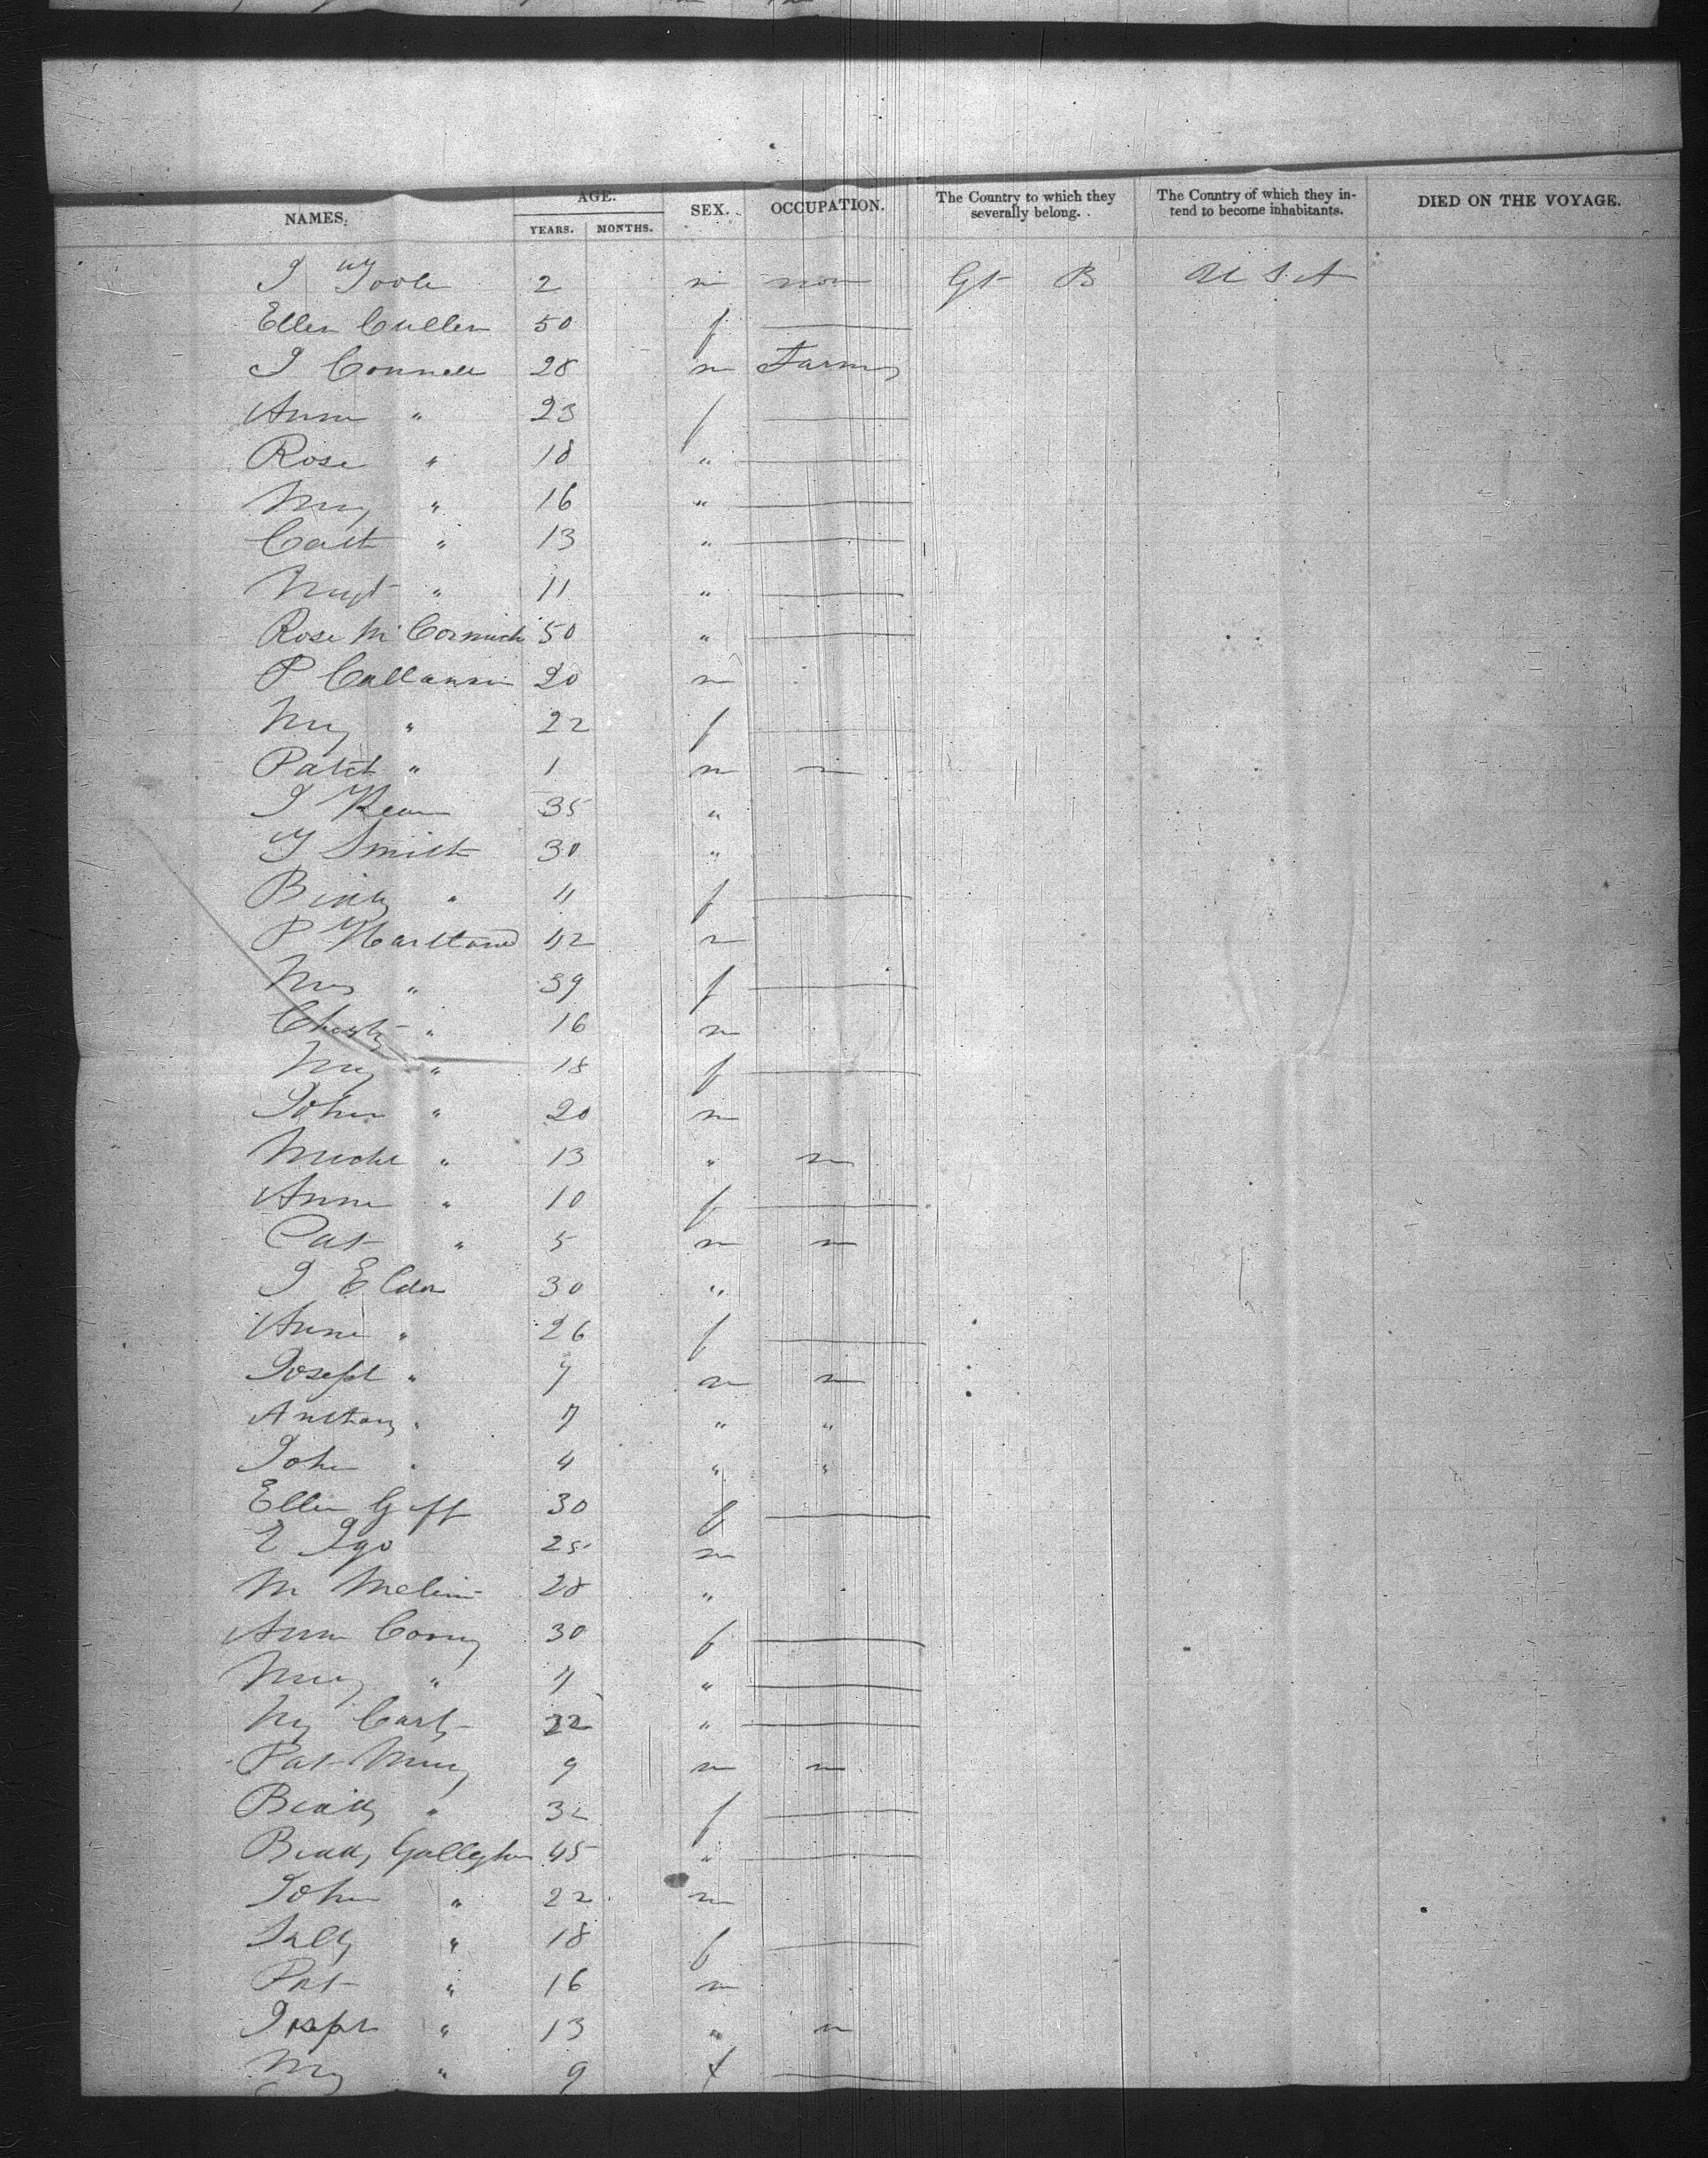 NAMES. AGE. YEARS. MONTHS. SEX. OCCUPATION. The Country to which they severally belong. The Country of which they intend to become inhabitants. DIED ON THE VOYAGE.
J Toole 2 m non Gt B U S A
Ellen Cullen 50 f
J Connell 28 m Farmer
Anne " 23 f
Rose " 18 "
Mary " 16 "
Cath " 13 "
Magt " 11 "
Rose McCormick 50 "
P Callanan 20 m
My " 22 f
Patch " 1 m n
J Kean 35 "
T Smith 30 "
Biddy " 4 f
P Hartland 42 m
Mrs " 39 f
" 16 m
My " 18 f
John " 20 m
Michl " 13 " n
Anne " 10 f
Pat " 5 m n
J Elder 30 "
Anne " 26 f
Joseph " 7 m n
Anthony " 7 " "
John " 4 " "
Ellen Goff 30 f
E Igo 25 m
M 28 "
Ann 30 f
Mary " 7 "
My 22 "
Pat 9 m n
Biddy " 32 f
Biddy Gallagher 45 "
John " 22 m
Sally " 18 f
Pat " 16 m
Joseph " 13 " n
My " 9 f